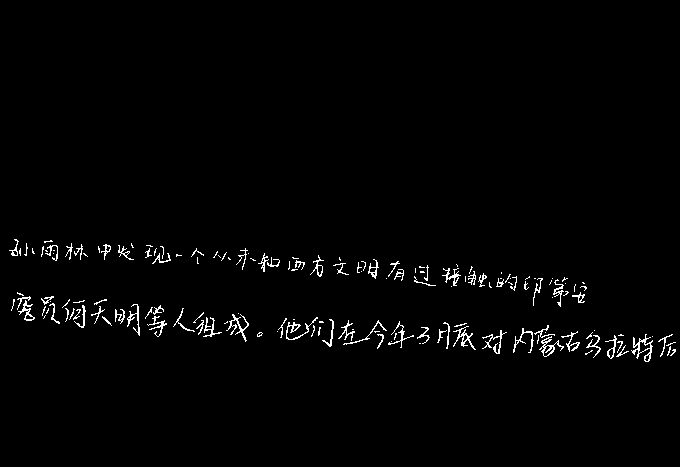 孙雨林中发现一个从未和西方文明有过接触的印第安
究员何天明等人组成。他们在今年3月底对内蒙古乌拉特后